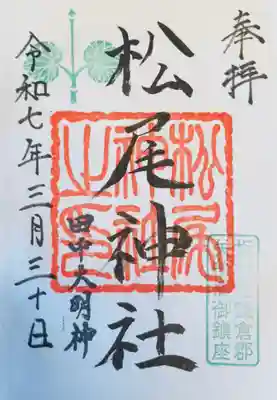 奉拝
松尾神社
田中大明神
令和七年三月三十日
松尾
神社
之印
倉郡
御鎮座